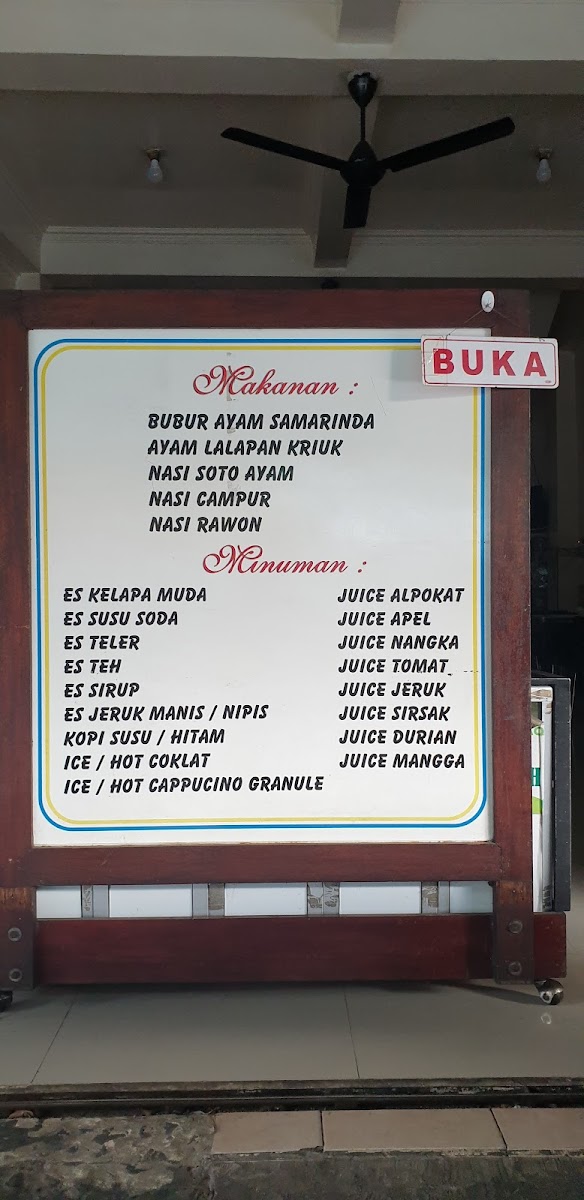 BUKA
Makanan :
BUBUR AYAM SAMARINDA
AYAM LALAPAN KRIUK
NASI SOTO AYAM
NASI CAMPUR
NASI RAWON
Minuman :
ES KELAPA MUDA
ES SUSU SODA
ES TELER
ES TEH
ES SIRUP
ES JERUK MANIS / NIPIS
KOPI SUSU / HITAM
ICE / HOT COKLAT
ICE / HOT CAPPUCINO GRANULE
JUICE ALPOKAT
JUICE APEL
JUICE NANGKA
JUICE TOMAT
JUICE JERUK
JUICE SIRSAK
JUICE DURIAN
JUICE MANGGA